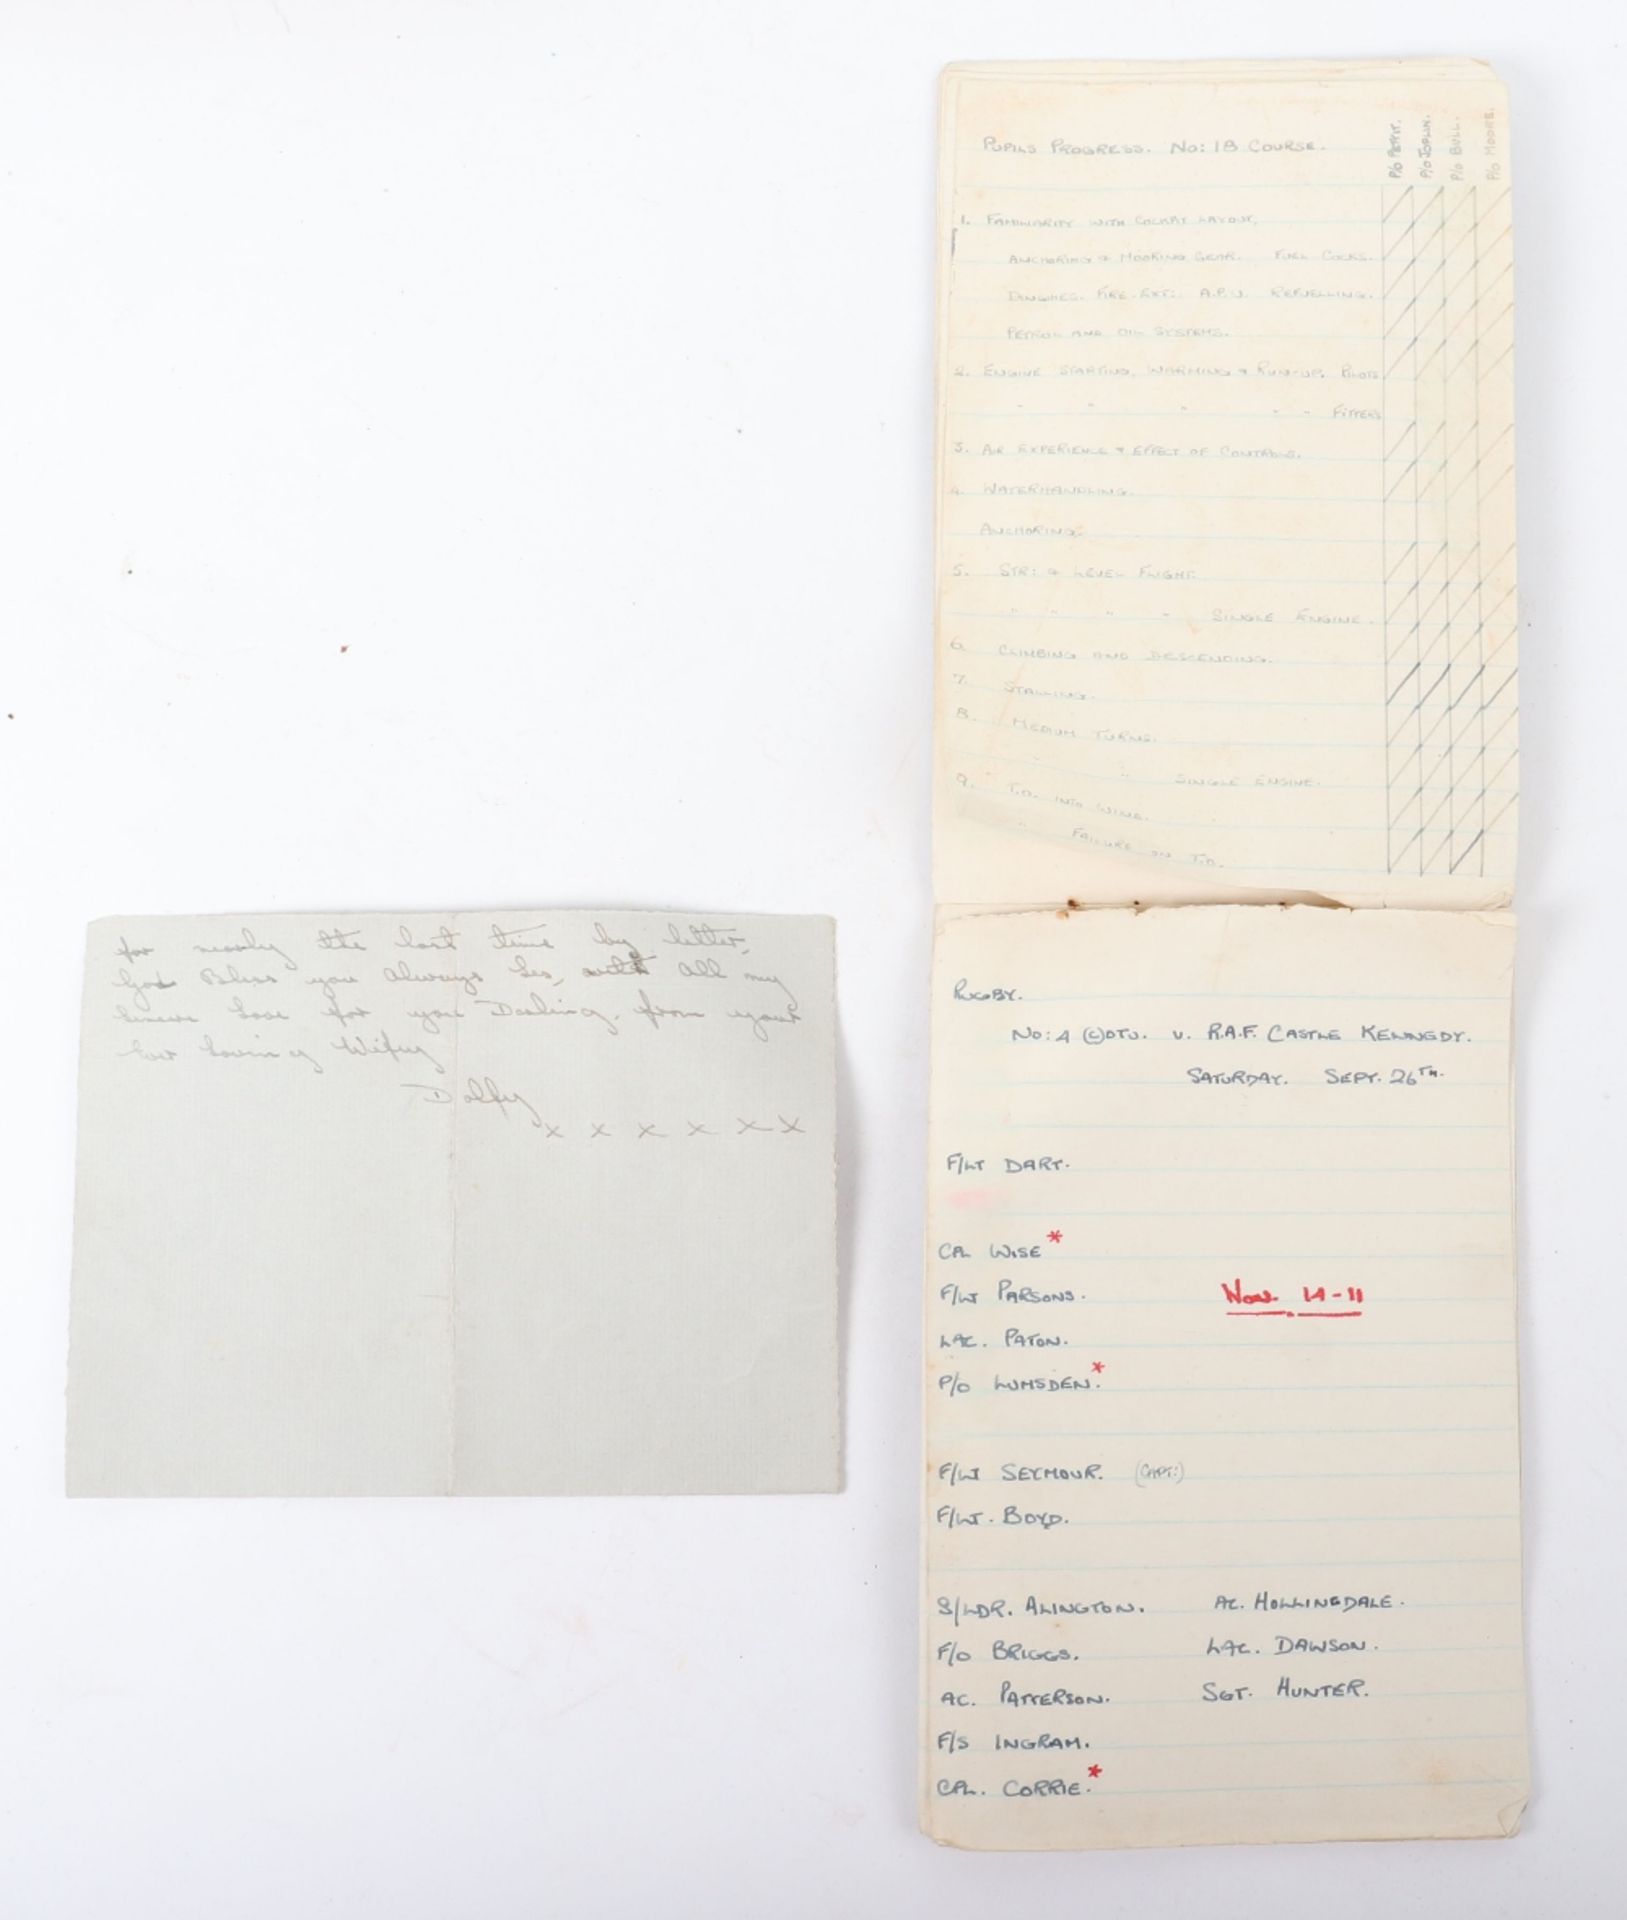 for nearly the last time by letter,
God Bless you Always Les, with All my
sincere Love for you Darling, from your
Ever Loving Wifey
Dolfy
x x x x x x
PUPILS PROGRESS. NO: 18 COURSE.
P/O PETTIT.
P/O JOPLIN.
P/O BULL.
P/O MOORE.
1. FAMILIARITY WITH COCKPIT LAYOUT,
ANCHORING & MOORING GEAR. FUEL COCKS.
DINGHIES. FIRE EXT: A.P.U. REFUELLING.
PETROL AND OIL SYSTEMS.
2. ENGINE STARTING, WARMING & RUN-UP. PILOTS
" " " " " FITTERS
3. AIR EXPERIENCE & EFFECT OF CONTROLS.
4. WATERHANDLING.
ANCHORING.
5. STR: & LEVEL FLIGHT.
" " " " SINGLE ENGINE.
6. CLIMBING AND DESCENDING.
7. STALLING.
8. MEDIUM TURNS.
" " SINGLE ENGINE.
9. T.O. INTO WIND.
" FAILURE ON T.O.
RUGBY.
NO: 4 (C)OTU. V. R.A.F. CASTLE KENNEDY.
SATURDAY. SEPT. 26TH.
F/LT DART.
CPL WISE *
F/LT PARSONS. Won 14-11
LAC. PATON.
P/O LUMSDEN. *
F/LT SEYMOUR. (CAPT:)
F/LT. BOYD.
S/LDR. ALINGTON. AC. HOLLINGDALE.
F/O BRIGGS. LAC. DAWSON.
AC. PATTERSON. SGT. HUNTER.
F/S INGRAM.
CPL. CORRIE. *